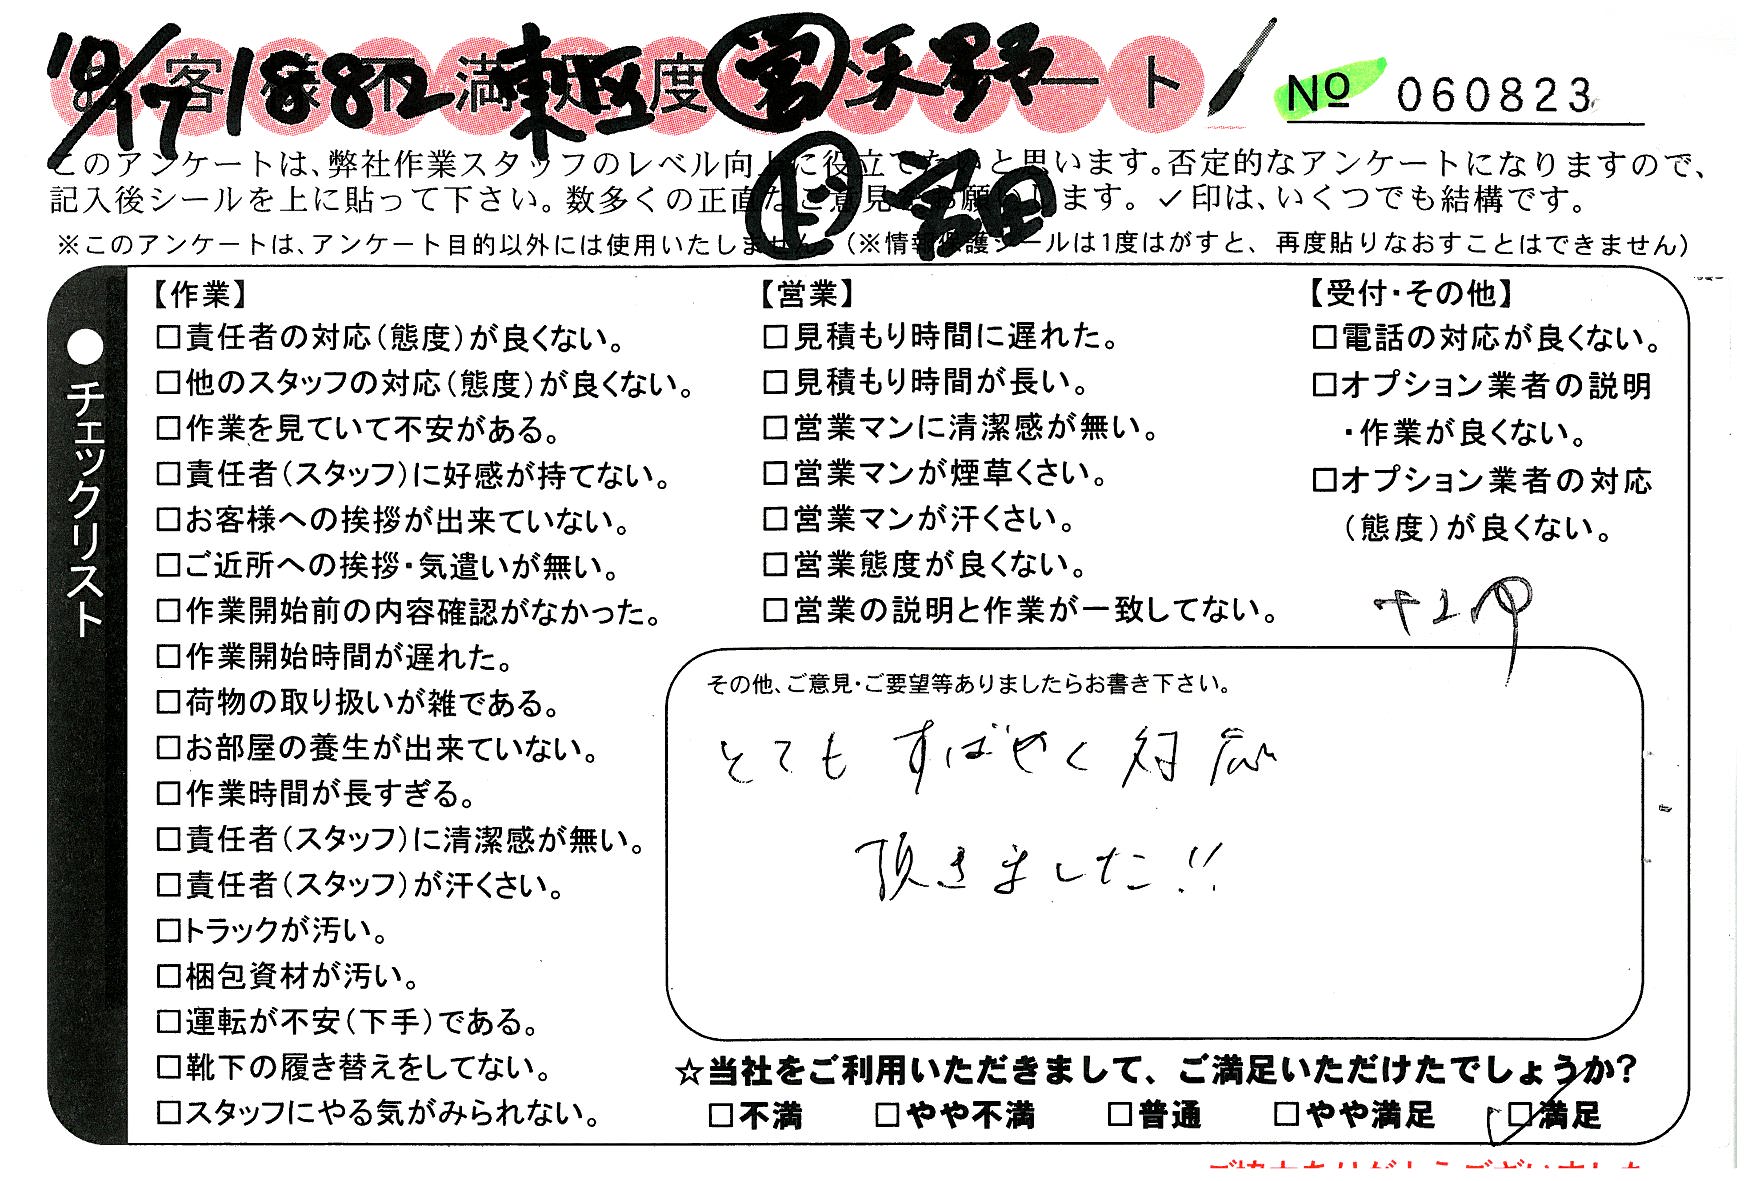 10/17 1882 東区 営 天野
お客様不満足度アンケート
No 060823
このアンケートは、弊社作業スタッフのレベル向上に役立てたいと思います。否定的なアンケートになりますので、
記入後シールを上に貼って下さい。数多くの正直なご意見をお願いします。✓印は、いくつでも結構です。
※このアンケートは、アンケート目的以外には使用いたしません。(※情報保護シールは1度はがすと、再度貼りなおすことはできません)
●チェックリスト
【作業】
□責任者の対応(態度)が良くない。
□他のスタッフの対応(態度)が良くない。
□作業を見ていて不安がある。
□責任者(スタッフ)に好感が持てない。
□お客様への挨拶が出来ていない。
□ご近所への挨拶・気遣いが無い。
□作業開始前の内容確認がなかった。
□作業開始時間が遅れた。
□荷物の取り扱いが雑である。
□お部屋の養生が出来ていない。
□作業時間が長すぎる。
□責任者(スタッフ)に清潔感が無い。
□責任者(スタッフ)が汗くさい。
□トラックが汚い。
□梱包資材が汚い。
□運転が不安(下手)である。
□靴下の履き替えをしてない。
□スタッフにやる気がみられない。
【営業】
□見積もり時間に遅れた。
□見積もり時間が長い。
□営業マンに清潔感が無い。
□営業マンが煙草くさい。
□営業マンが汗くさい。
□営業態度が良くない。
□営業の説明と作業が一致してない。
【受付・その他】
□電話の対応が良くない。
□オプション業者の説明
・作業が良くない。
□オプション業者の対応
(態度)が良くない。
その他、ご意見・ご要望等ありましたらお書き下さい。
とても すばやく 対応
頂きました!!
☆当社をご利用いただきまして、ご満足いただけたでしょうか?
□不満 □やや不満 □普通 □やや満足 ☑満足
ご協力ありがとうございました